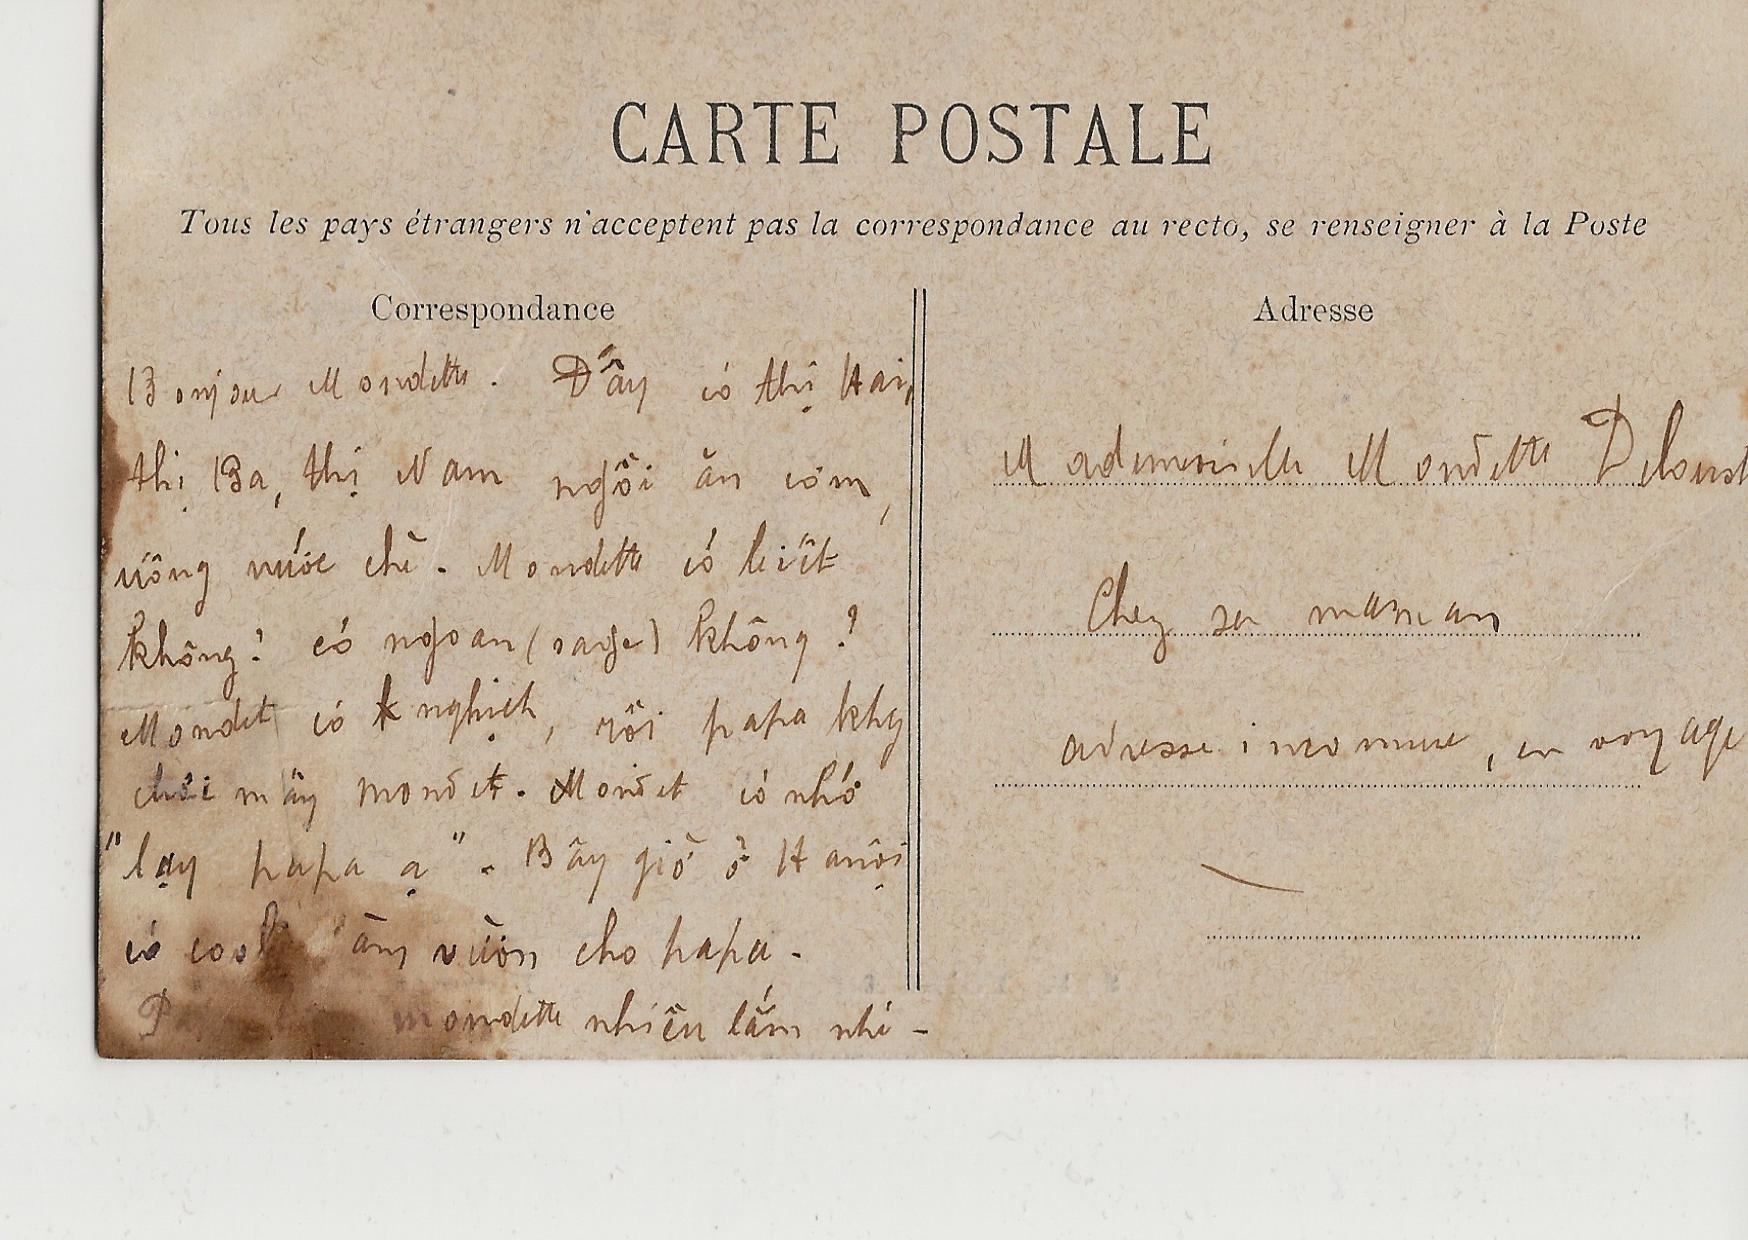 CARTE POSTALE
Tous les pays étrangers n'acceptent pas la correspondance au recto, se renseigner à la Poste
Correspondance
Adresse
Bonjour Mondette. Đấy có thị Hai,
thị Ba, thị Nam ngồi ăn cơm,
uông nước chè. Mondette có biết
không? có ngoan (sage) không?
Mondet có nghịch, rồi papa
mấy mondet. Mondet có nhớ
"lạy papa ạ". Bây giờ ở Hanội
có vườn cho papa.
mondette nhiều lắm nhé -
Mademoiselle Mondette
Chez sa maman
adresse inconnue, en voyage